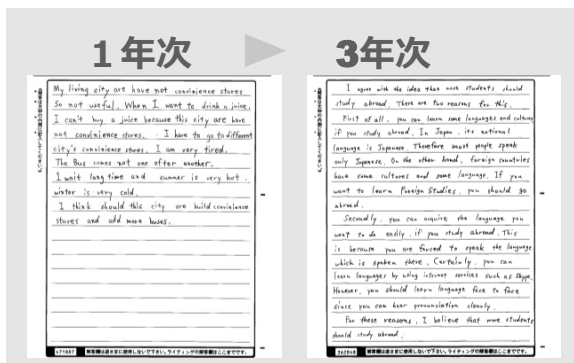 1年次
3年次
My living city are have not convinience stores.
So not useful. When I want to drink a juice,
I can't buy a juice because this city are have
not convinience stores. I have to go to different
city's convinience stores. I am very tired.
The Bus comes not one after another.
I wait long time and summer is very hot,
winter is very cold.
I think should this city are build convinience
stores and add more buses.
I agree with the idea that more students should
study abroad. There are two reasons for this.
First of all, you can learn some languages and cultures
if you study abroad. In Japan, its national
language is Japanese. Therefore most people speak
only Japanese. On the other hand, foreign countries
have some cultures and some language. If you
want to learn Foreign Studies, you should go
abroad.
Secondly, you can acquire the language you
want to do easily, if you study abroad. This
is because you are forced to speak the language
which is spoken there. Certainly, you can
learn languages by using internet services such as Skype.
However, you should learn language face to face
since you can hear pronunciation clearly.
For these reasons, I believe that more students
should study abroad.